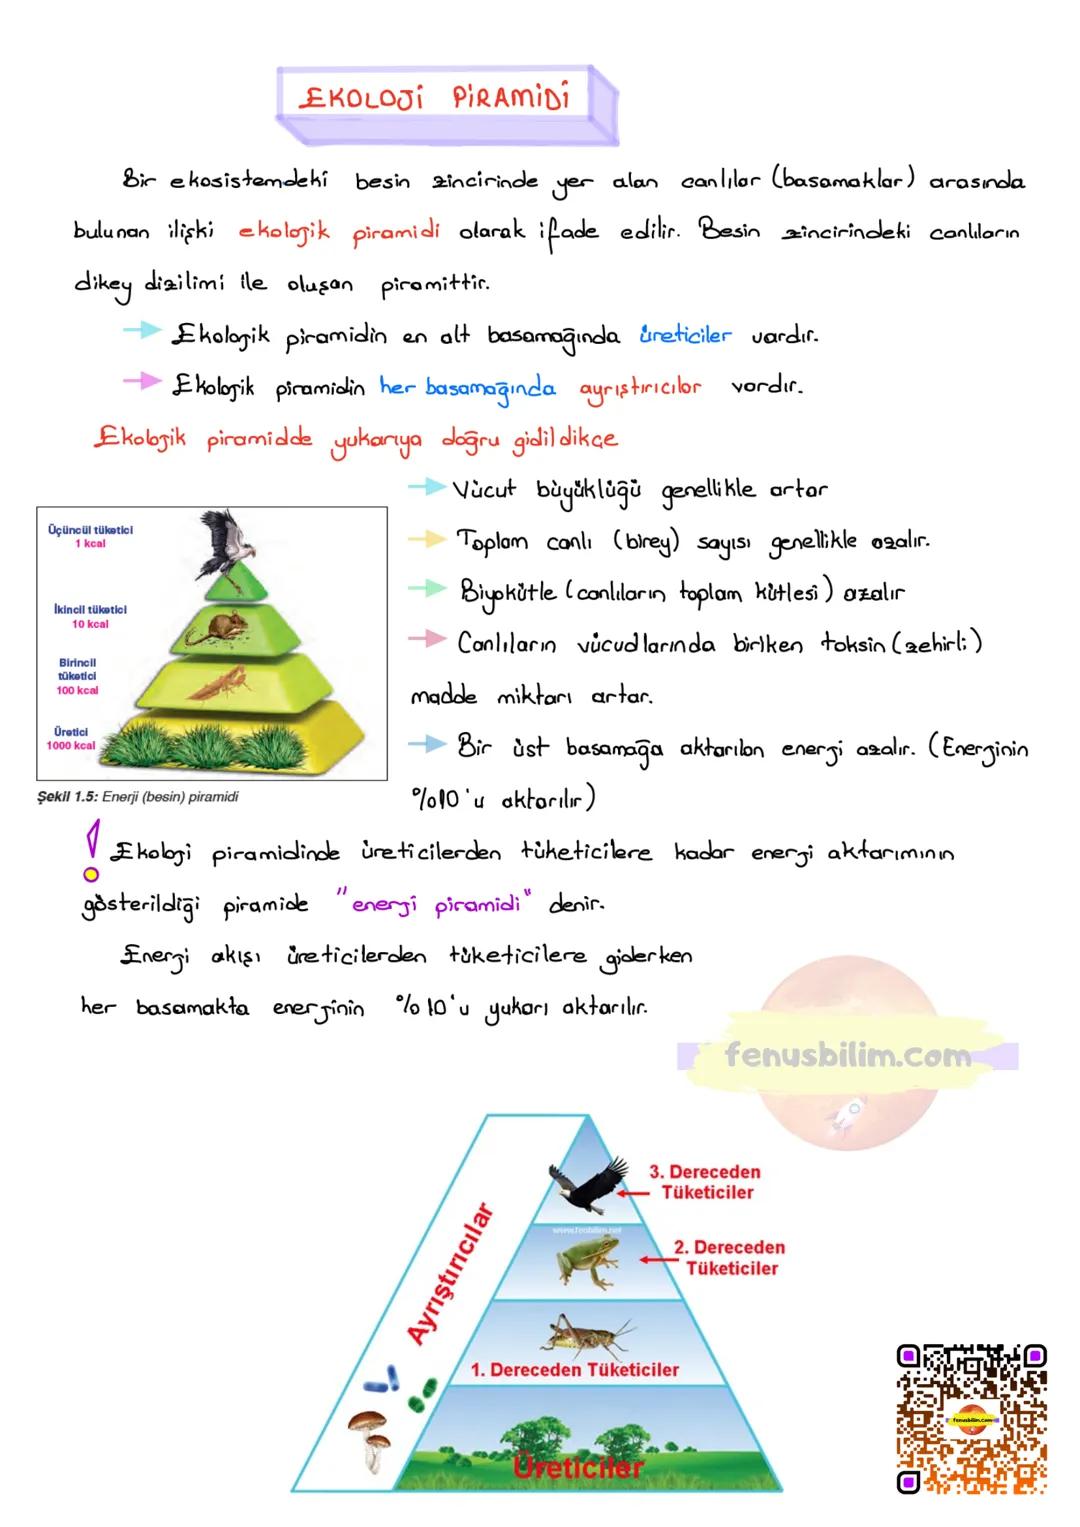 EKOLOJİ PİRAMİDİ
Bir ekosistemdeki besin zincirinde yer alan canlılar (basamaklar) arasında
bulunan ilişki ekolojik piramidi olarak ifade edilir. Besin zincirindeki canlıların
dikey dizilimi ile oluşan piramittir.
Ekolojik piramidin en alt basamağında üreticiler vardır.
Ekolojik piramidin her basamağında ayrıştırıcılar vardır.
Ekolojik piramidde yukarıya doğru gidildikçe
Vücut büyüklüğü genellikle artar
Toplam canlı (birey) sayısı genellikle azalır.
Biyokütle (canlıların toplam kütlesi) azalır
Canlıların vücudlarında biriken toksin (zehirli)
madde miktarı artar.
Bir üst basamağa aktarılan enerji azalır. (Enerjinin
%10'u aktarılır)
Üçüncül tüketici
1 kcal
İkincil tüketici
10 kcal
Birincil
tüketici
100 kcal
Üretici
1000 kcal
Şekil 1.5: Enerji (besin) piramidi
! Ekoloji piramidinde üreticilerden tüketicilere kadar enerji aktarımının
gösterildiği piramide "enerji piramidi" denir.
Enerji akışı üreticilerden tüketicilere giderken
her basamakta enerjinin %10'u yukarı aktarılır.
fenusbilim.com
3. Dereceden
Tüketiciler
2. Dereceden
Tüketiciler
Ayrıştırıcılar
1. Dereceden Tüketiciler
Üreticiler
fenusbilim.com